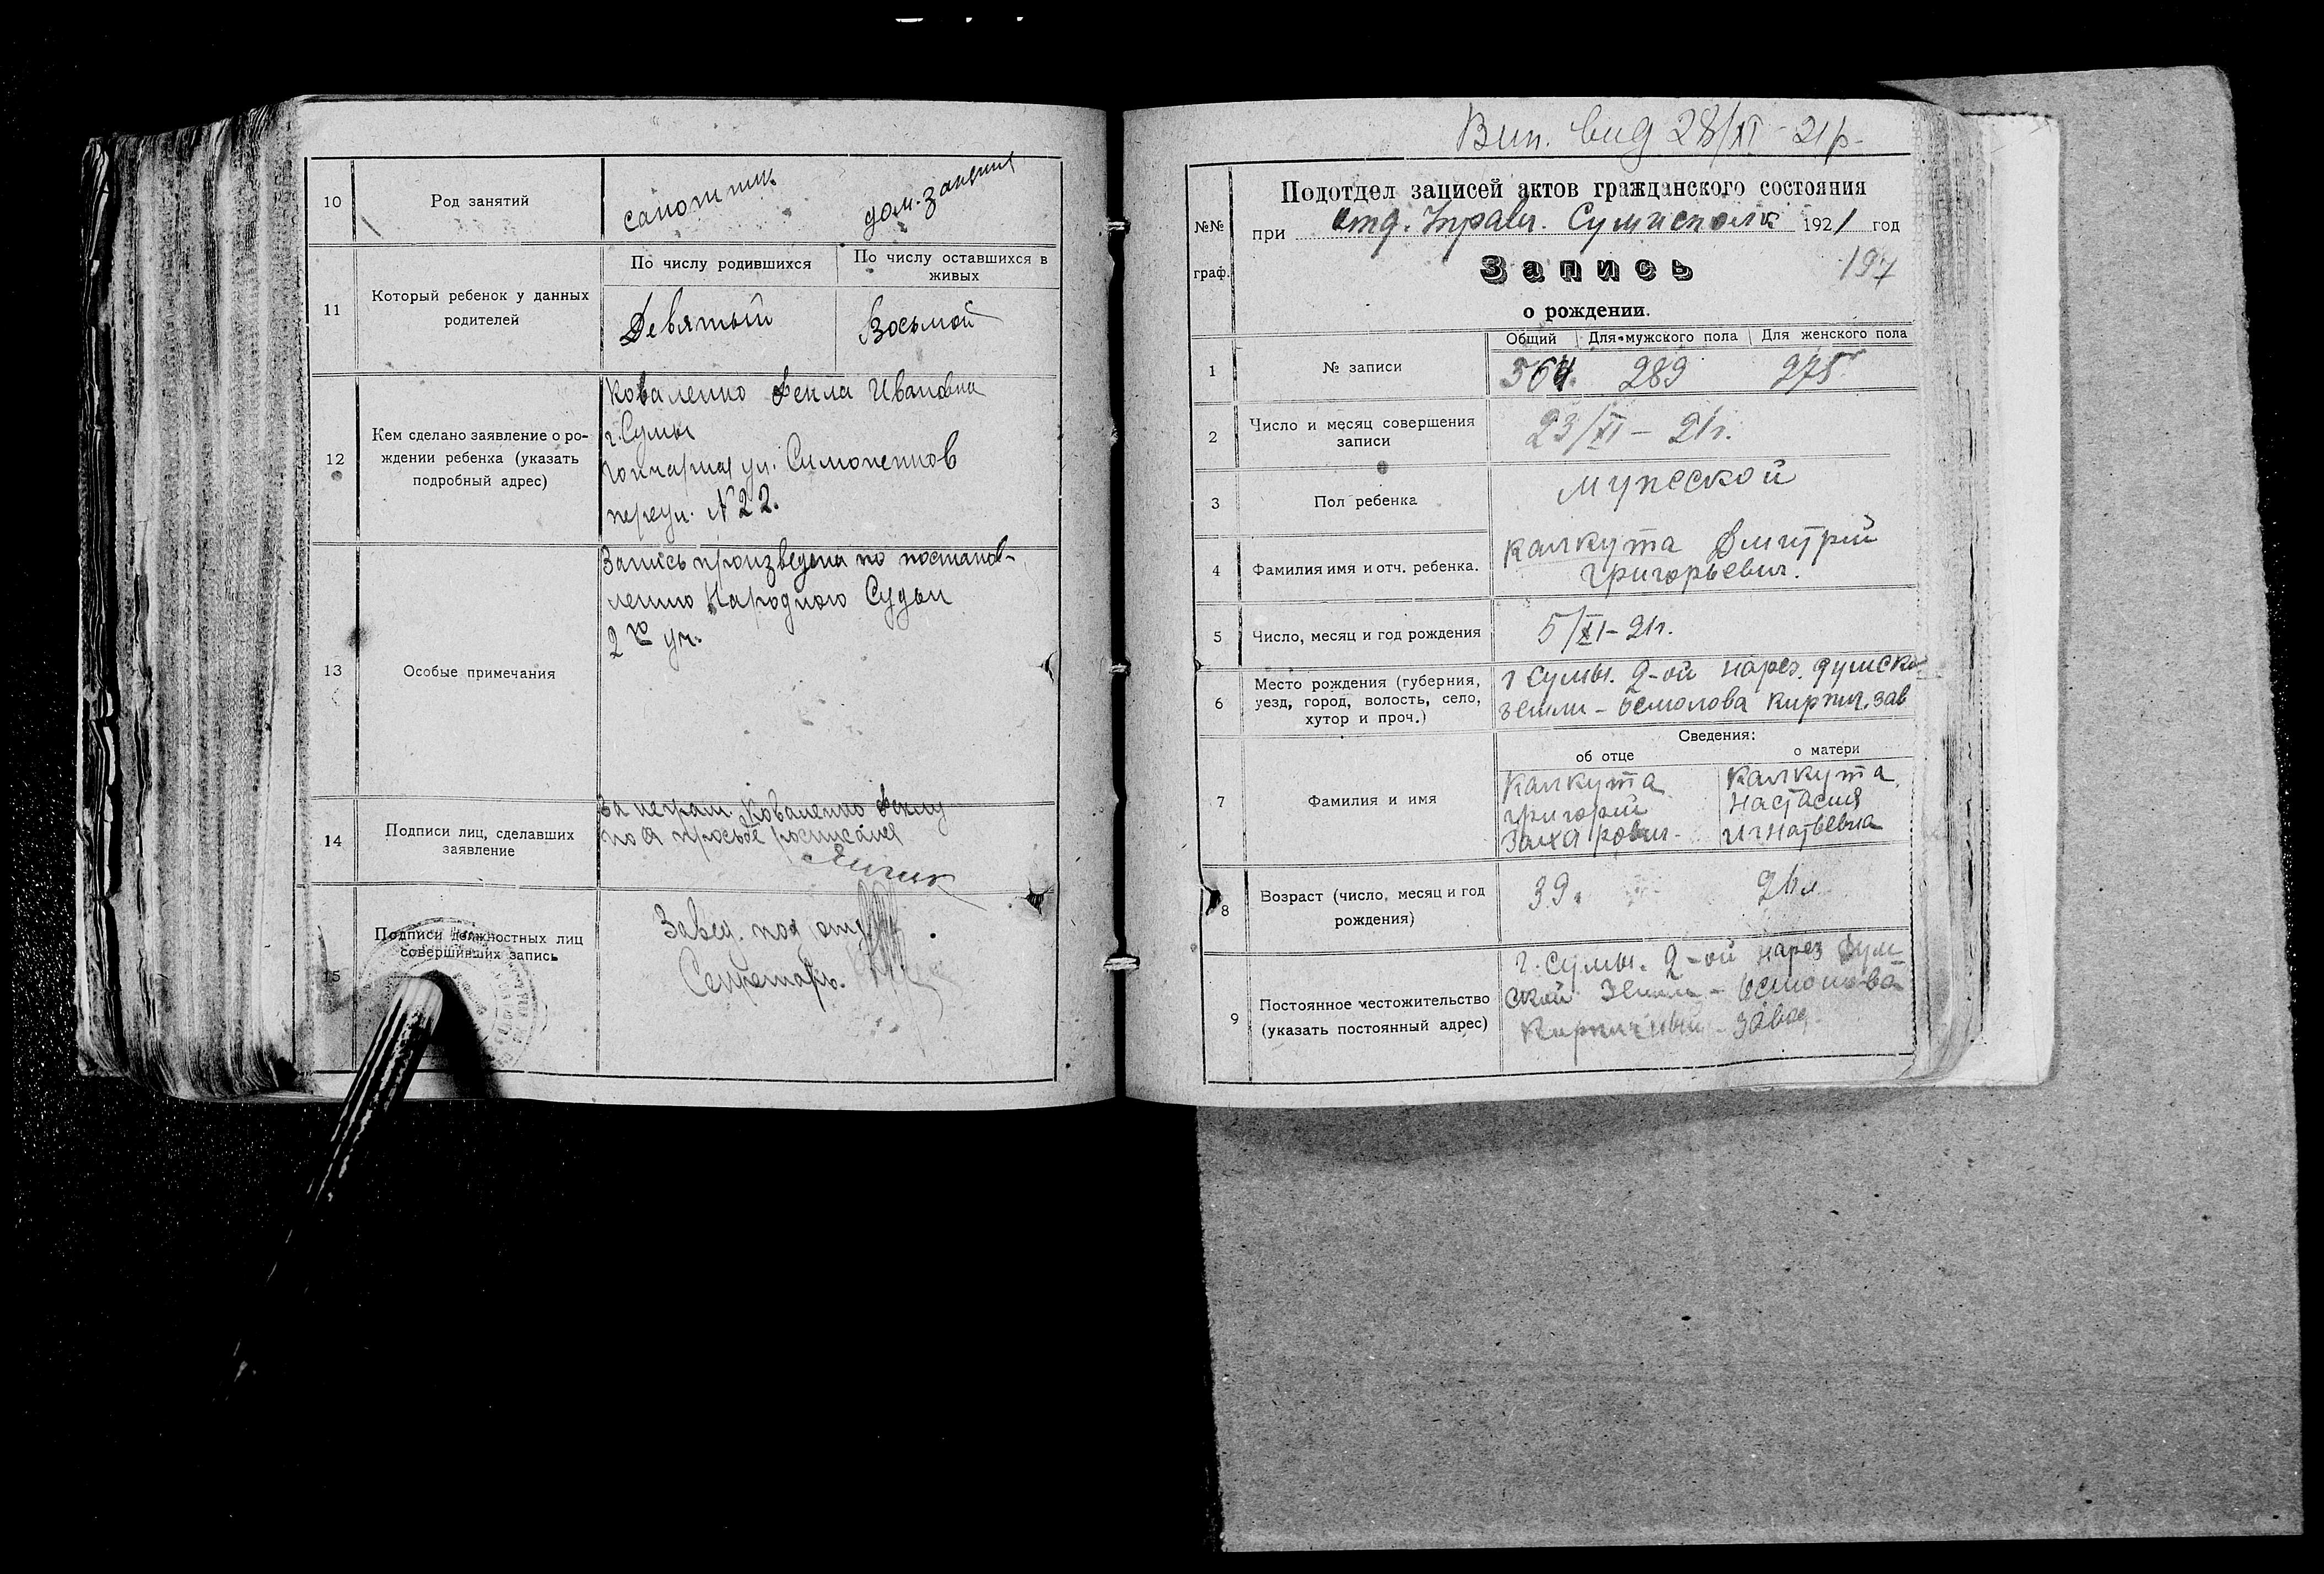 10
Род занятий
сапожник
дом. занятия
11
Который ребенок у данных
родителей
По числу родившихся
По числу оставшихся в
живых
Девятый
Восьмой
12
Кем сделано заявление о ро-
ждении ребенка (указать
подробный адрес)
Коваленко Фекла Ивановна
г. Сумы
Гончарная ул. Симоненков
переул. N 22.
13
Особые примечания
Запись произведена по постанов-
лению Народного Судьи
2го уч.
14
Подписи лиц, сделавших
заявление
За неграм. Коваленко Феклу
по её просьбе расписался
15
Подписи должностных лиц
совершивших запись
Завед. под отд
Секретарь.
Вип. вид 28/XI - 21р.
№№
граф.
Подотдел записей актов гражданского состояния
при Отд. Управл. Сумисполк 1921 год
Запись
197
о рождении.
1
№ записи
Общий
Для мужского пола
Для женского пола
564.
289
275
2
Число и месяц совершения
записи
23/XI - 21г.
3
Пол ребенка
Мужеской
4
Фамилия имя и отч. ребенка.
Калкута Дмитрий
Григорьевич.
5
Число, месяц и год рождения
5/XI - 21г.
6
Место рождения (губерния,
уезд, город, волость, село,
хутор и проч.)
г Сумы. 2-ой нарез. думско
земли - Осмолова Кирпич. зав
7
Фамилия и имя
Сведения:
об отце
о матери
Калкута
Григорий
Захарович.
Калкута
Настасия
Игнатьевна
8
Возраст (число, месяц и год
рождения)
39.
26 л
9
Постоянное местожительство
(указать постоянный адрес)
г. Сумы. 2-ой нарез Дум
ской Земли - Осмолова
Кирпичный - завод